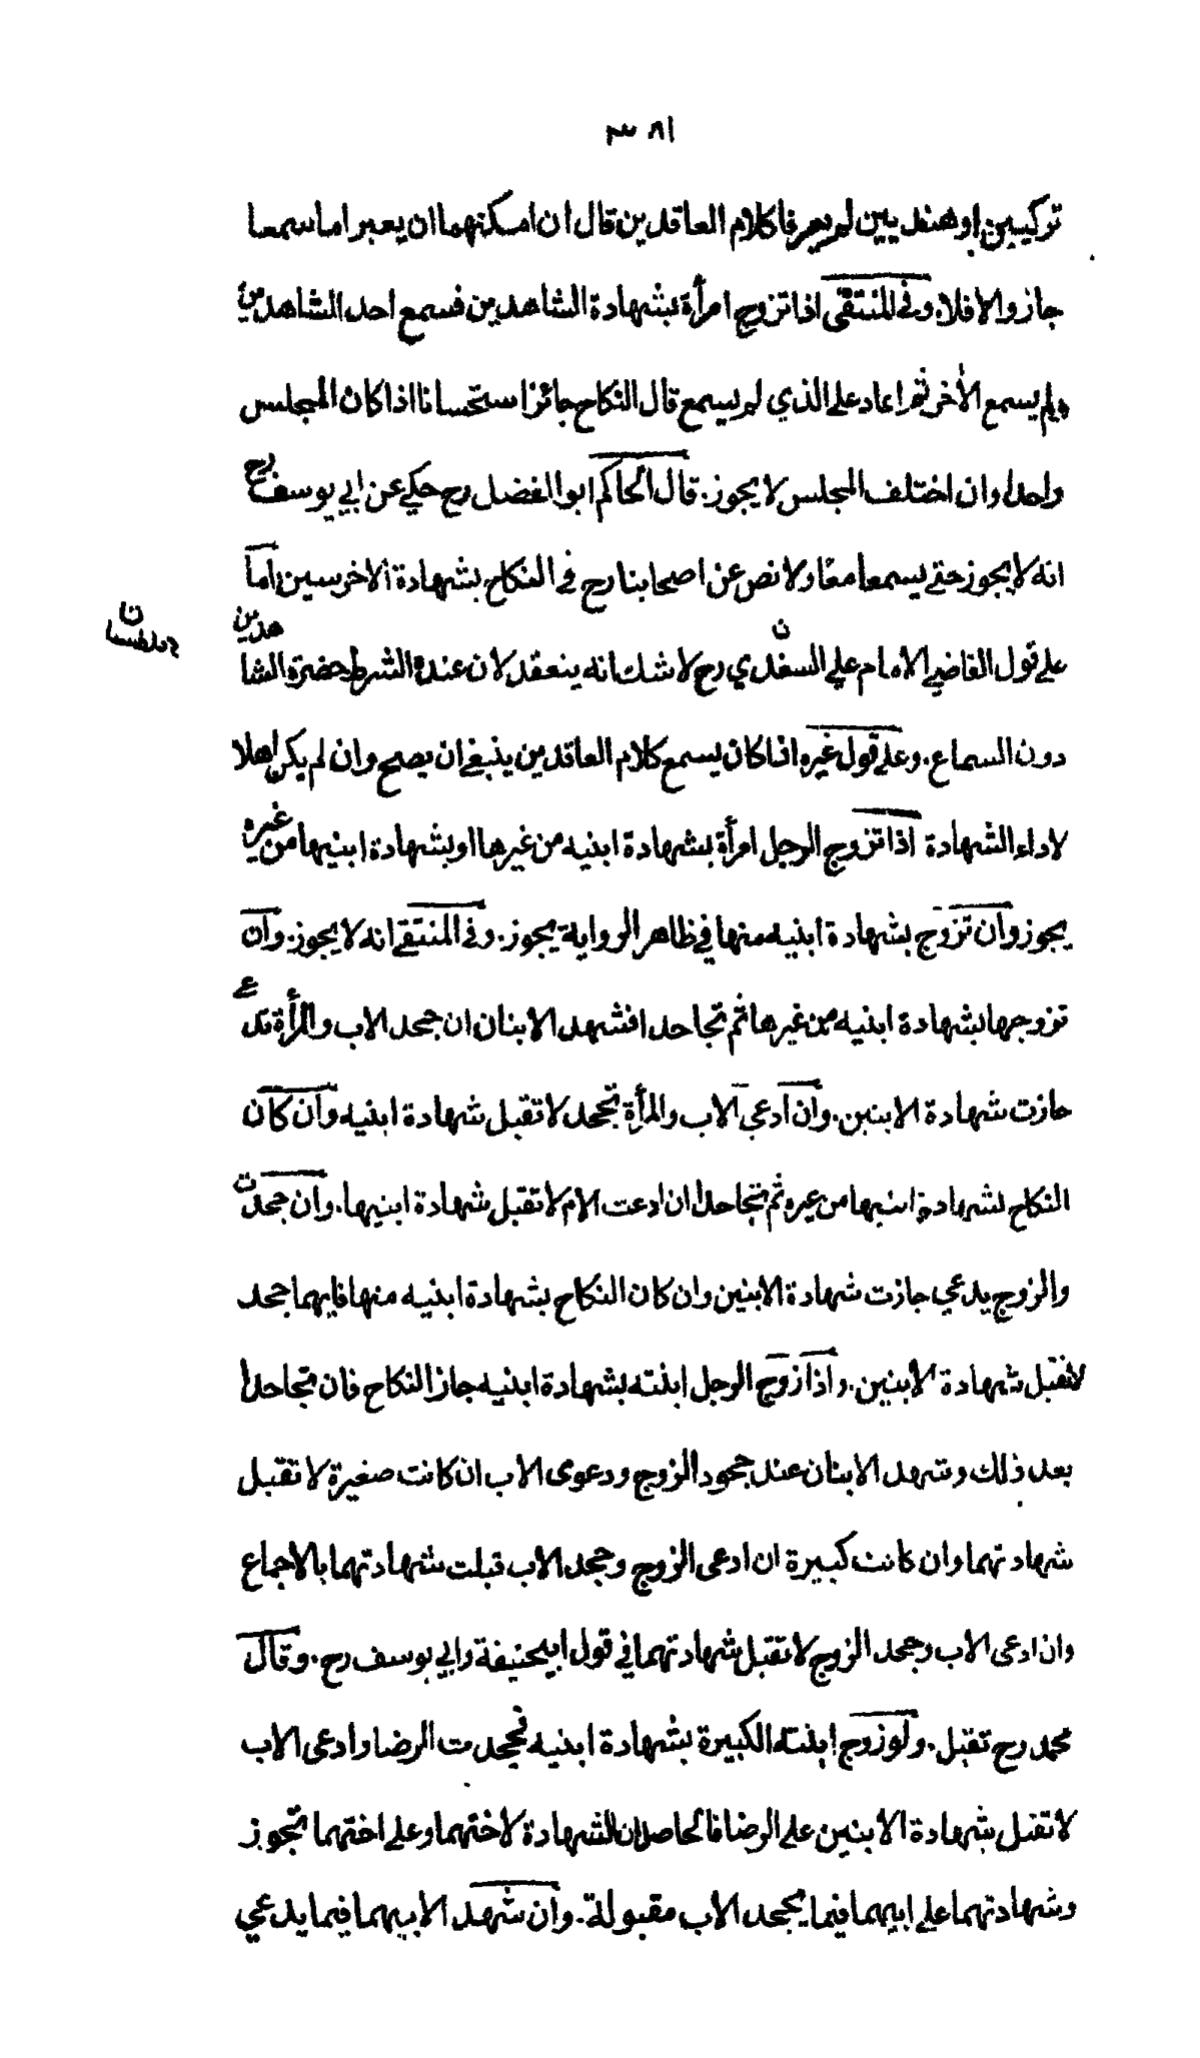 ٣٨١
تركيين او هنديين لم يعرفا كلام العاقدين قال ان امكنهما ان يعبرا ما سمعا
جاز والا فلا، وفي المنتقى اذا تزوج امرأة بشهادة الشاهدين فسمع احد الشاهدين
ولم يسمع الأخر ثم اعاد على الذي لم يسمع قال النكاح جائز استحسانا اذا كان المجلس
واحدا وان اختلف المجلس لا يجوز. قال الحاكم ابو الفضل رح حكي عن ابي يوسف رح
انه لا يجوز حتى يسمعا معا ولا نص عن اصحابنا رح في النكاح بشهادة الاخرسين اما
على قول القاضي الامام علي السغدي رح لا شك انه ينعقد لان عنده الشرط حضرة الشاهدين
دون السماع. وعلى قول غيره اذا كان يسمع كلام العاقدين ينبغي ان يصح وان لم يكن اهلا
لاداء الشهادة اذا تزوج الرجل امرأة بشهادة ابنيه من غيرها او بشهادة ابنيها من غيره
يجوز وان تزوج بشهادة ابنيه منها في ظاهر الرواية يجوز. وفي المنتقى انه لا يجوز. وان
تزوجها بشهادة ابنيه من غيرها ثم تجاحدا فشهد الابنان ان جحد الاب والمرأة تدعي
جازت شهادة الابنين. وان ادعي الاب والمرأة تجحد لا تقبل شهادة ابنيه وان كان
النكاح بشهادة ابنيها من غيره ثم تجاحدا ان ادعت الام لا تقبل شهادة ابنيها. وان جحدت
والزوج يدعي جازت شهادة الابنين وان كان النكاح بشهادة ابنيه منها فايهما جحد
لا تقبل شهادة الابنين. واذا زوج الرجل ابنته بشهادة ابنيه جاز النكاح فان تجاحدا
بعد ذلك وشهد الابنان عند جحود الزوج ودعوى الاب ان كانت صغيرة لا تقبل
شهادتهما وان كانت كبيرة ان ادعى الزوج وجحد الاب قبلت شهادتهما بالاجماع
وان ادعى الاب وجحد الزوج لا تقبل شهادتهما في قول ابيحنيفة وابي يوسف رح. وقال
محمد رح تقبل. ولو زوج ابنته الكبيرة بشهادة ابنيه فجحدت الرضا وادعى الاب
لا تقبل شهادة الابنين على الرضا فالحاصل ان الشهادة لاختهما وعلى اختهما تجوز
وشهادتهما على ابيهما فيما يجحد الاب مقبولة. وان شهد الابيهما فيما يدعي